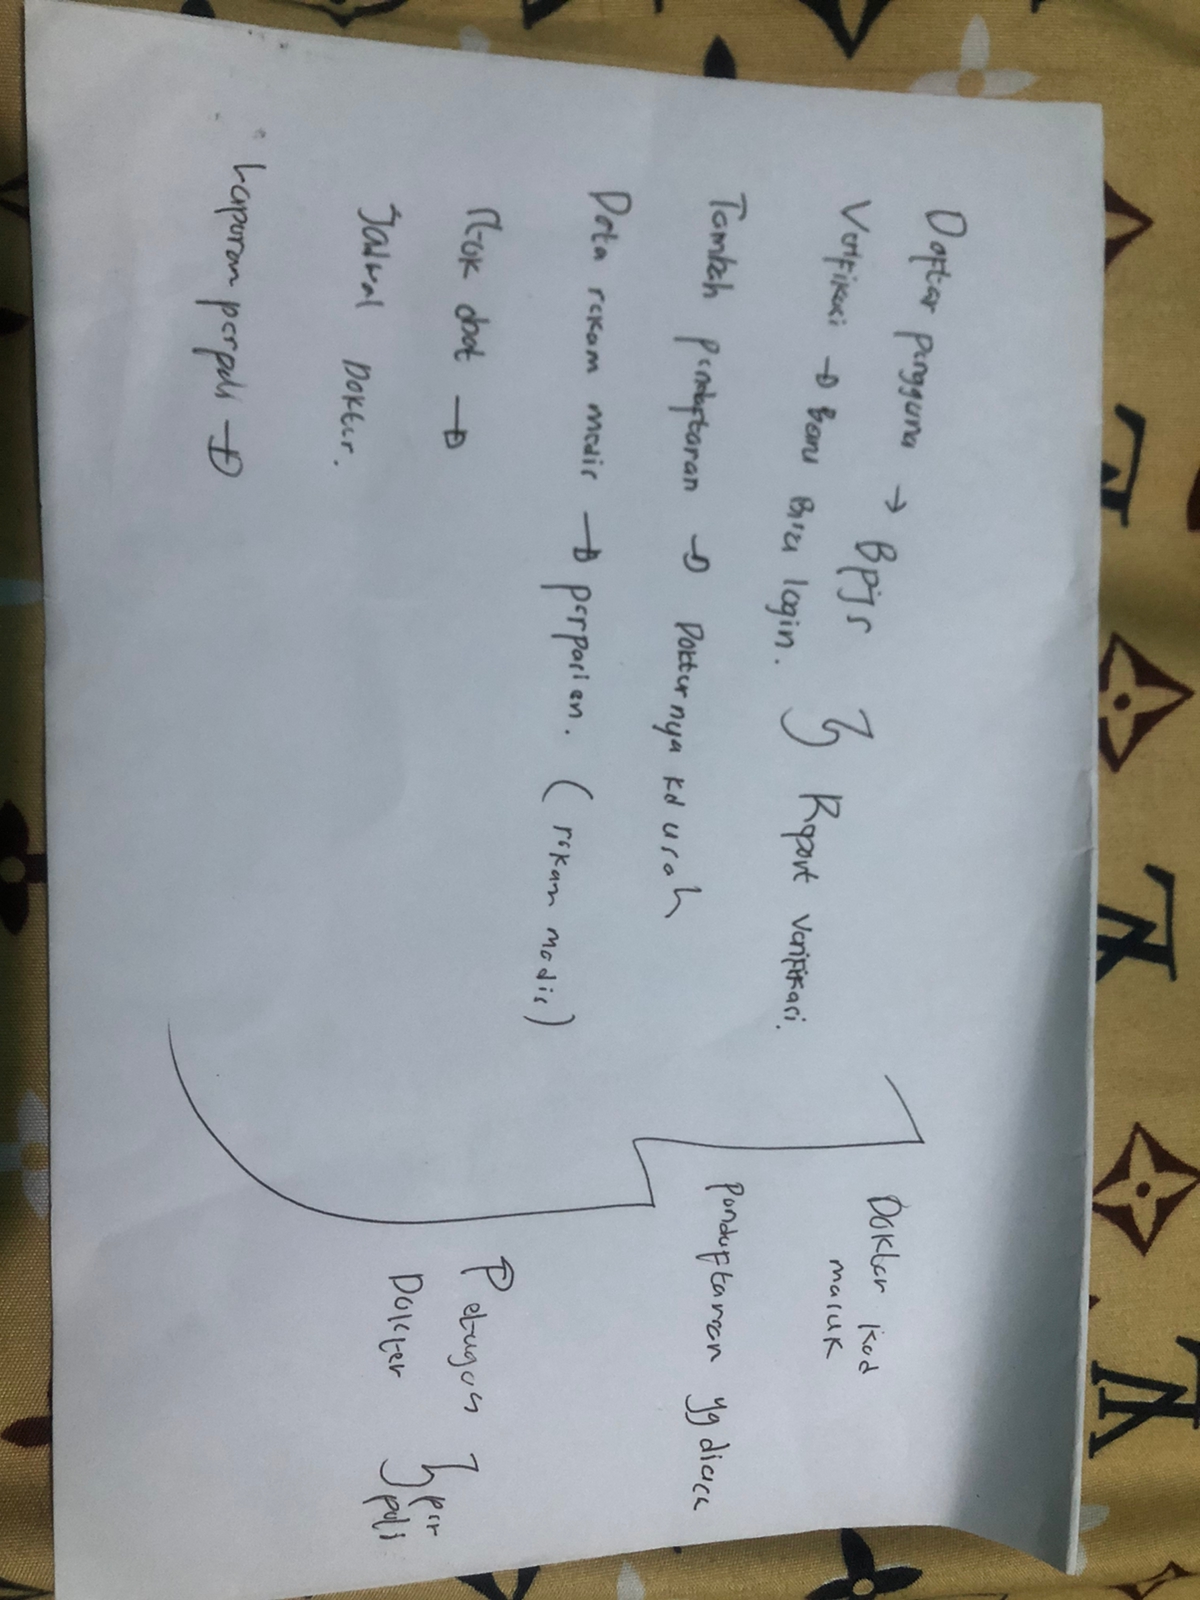 Daftar pengguna → Bpjs
Verifikasi → Baru Bisa login. } Report verifikasi.
Tambah pendaftaran → Dokternya kd usah
Data rekam medis → perpasien. (rekam medis)
Stok obat →
Jadwal Dokter.
Laporan perpoli →
Dokter kad
masuk
pendaftaran yg diacc
Petugas
Dokter } per
poli